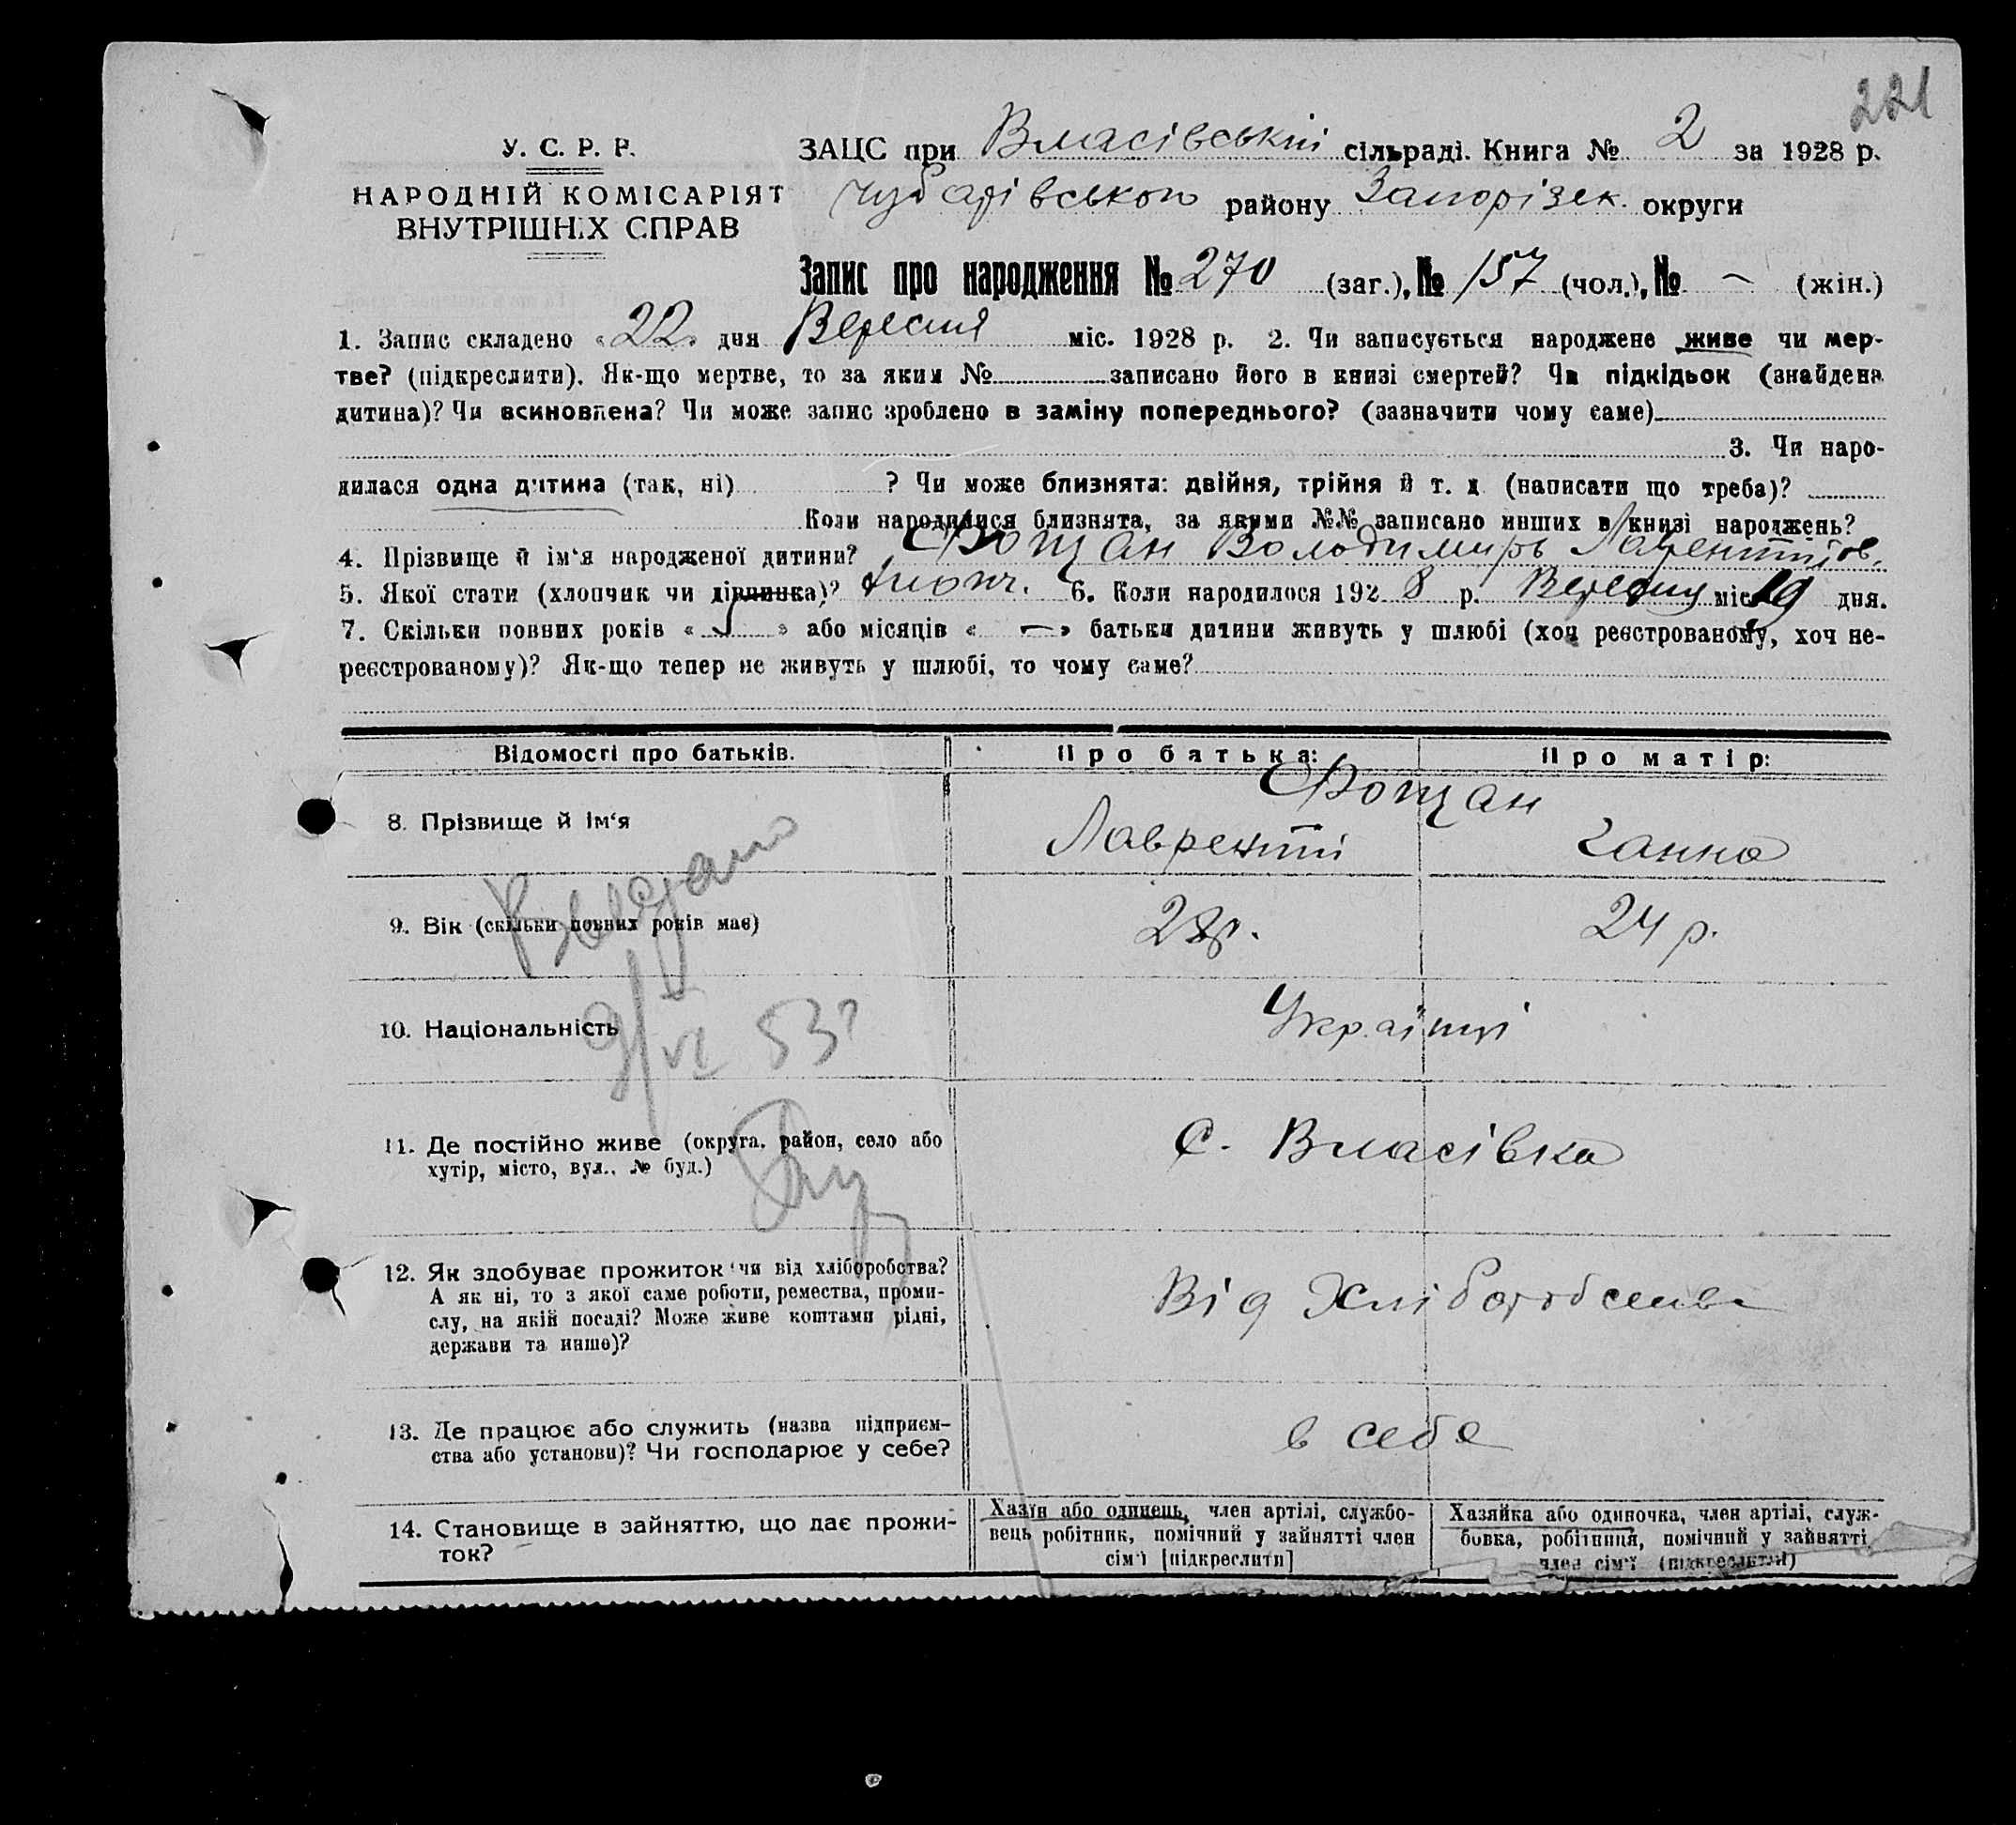 221
У. С. Р. Р.
НАРОДНІЙ КОМІСАРІЯТ
ВНУТРІШНІХ СПРАВ
ЗАЦС при Власівській сільраді. Книга № 2 за 1928 р.
Чубарівського району Запорізьк. округи
Запис про народження № 270 (заг.), № 157 (чол.), № – (жін.)
1. Запис складено «22» дня Вересня міс. 1928 р. 2. Чи записується народжене живе чи мер-
тве? (підкреслити). Як-що мертве, то за яким № записано його в книзі смертей? Чи підкідьок (знайдена
дитина)? Чи всиновлена? Чи може запис зроблено в заміну попереднього? (зазначити чому саме)
3. Чи наро-
дилася одна дитина (так, ні) ? Чи може близнята: двійня, трійня й т. д. (написати що треба)?
Коли народилися близнята, за якими №№ записано инших в книзі народжень?
4. Прізвище й ім'я народженої дитини? Фощан Володимиръ Лаврентійов.
5. Якої стати (хлопчик чи дівчинка)? Хлопч. 6. Коли народилося 1928 р. Вересня міс. 19 дня.
7. Скільки повних років « » або місяців « — » батьки дитини живуть у шлюбі (хоч реєстрованому, хоч не-
реєстрованому)? Як-що тепер не живуть у шлюбі, то чому саме?
Відомості про батьків. Про батька: Про матір:
Фощан
8. Прізвище й ім'я Лаврентій Ганна
9. Вік (скільки повних років має) 28р. 24 р.
10. Національність Українці
9/VI 53
11. Де постійно живе (округа, район, село або С. Власівка
хутір, місто, вул., № буд.)
12. Як здобуває прожиток чи від хліборобства? Від Хліборобства
А як ні, то з якої саме роботи, ремества, проми-
слу, на якій посаді? Може живе коштами рідні,
держави та инше)?
13. Де працює або служить (назва підприєм- в себе
ства або установи)? Чи господарює у себе?
14. Становище в зайняттю, що дає прожи-
ток?
Хазїн або одинець, член артілі, службо-
вець робітник, помічний у зайнятті член
сім'ї [підкреслити]
Хазяйка або одиночка, член артілі, служ-
бовка, робітниця, помічний у зайнятті
член сім'ї (підкреслити)